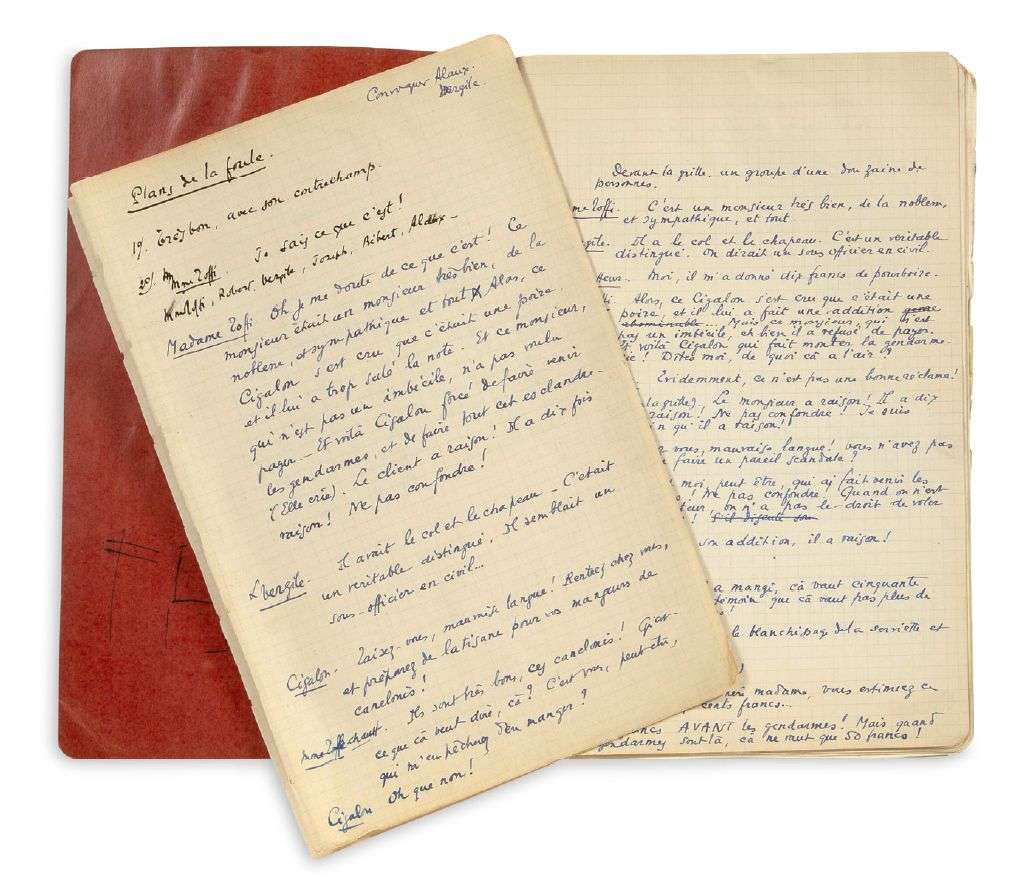 Convoquer Alaux.
Vergile.
Plans de la foule.
1º/. Très bon, avec son contrechamp.
2º/. Mme Toffi. Je sais ce que c'est!
Toffi, Robert, Vergile, Joseph, Ribert, Alaux -
Madame Toffi Oh je me doute de ce que c'est! Ce
monsieur c'était un monsieur très bien, de la
noblesse, et sympathique et tout. Alors, ce
Cigalon s'est cru que c'était une poire
et il lui a trop salé la note. Et ce monsieur,
qui n'est pas un imbécile, n'a pas voulu
payer - Et voilà Cigalon forcé de faire venir
les gendarmes, et de faire tout cet esclandre -
(Elle crie). Le client a raison! Il a dix fois
raison! Ne pas confondre!
Vergile. Il avait le col et le chapeau - C'était
un veritable distingué. Il semblait un
sous-officier en civil...
Cigalon. Taisez-vous, mauvaise langue! Rentrez chez vous,
et préparez de la tisane pour vos mangeurs de
canelonis!
Mme Toffi Ils sont très bons, ces canelonis! Qu'est-
ce que cà veut dire, cà? C'est vous, peut-être,
qui m'empêcherez d'en manger?
Cigalon Oh que non!
Devant la grille un groupe d'une douzaine de
personnes.
me Toffi. C'est un monsieur très bien, de la noblesse,
et sympathique, et tout.
gile. Il a le col et le chapeau. C'est un veritable
distingué. On dirait un sous officier en civil.
teur. Moi, il m'a donné dix francs de pourboire.
fi. Alors, ce Cigalon s'est cru que c'était une
poire, et il lui a fait une addition
abominable... Mais ce monsieur, n'est
pas un imbécile, et bien il a refusé de payer.
Et voilà Cigalon qui fait monter la gendarme-
rie! Dites moi, de quoi cà a l'air?
Evidemment, ce n'est pas une bonne réclame!
la grille). Le monsieur a raison! Il a dix
raison! Ne pas confondre! Je suis
in qu'il a raison!
vous, mauvaise langue! vous n'avez pas
faire un pareil scandale?
moi, peut être, qui ai fait venir les
! Ne pas confondre! Quand on n'est
teur, on n'a pas le droit de voler
! S'il discute son
son addition, il a raison!
a mangé, cà vaut cinquante
témoin que cà vaut pas plus de
!
le blanchissage de la serviette et
!
chère madame, vous estimiez ce
cents francs...
francs AVANT les gendarmes! Mais quand
gendarmes sont là, cà ne vaut que 50 francs!